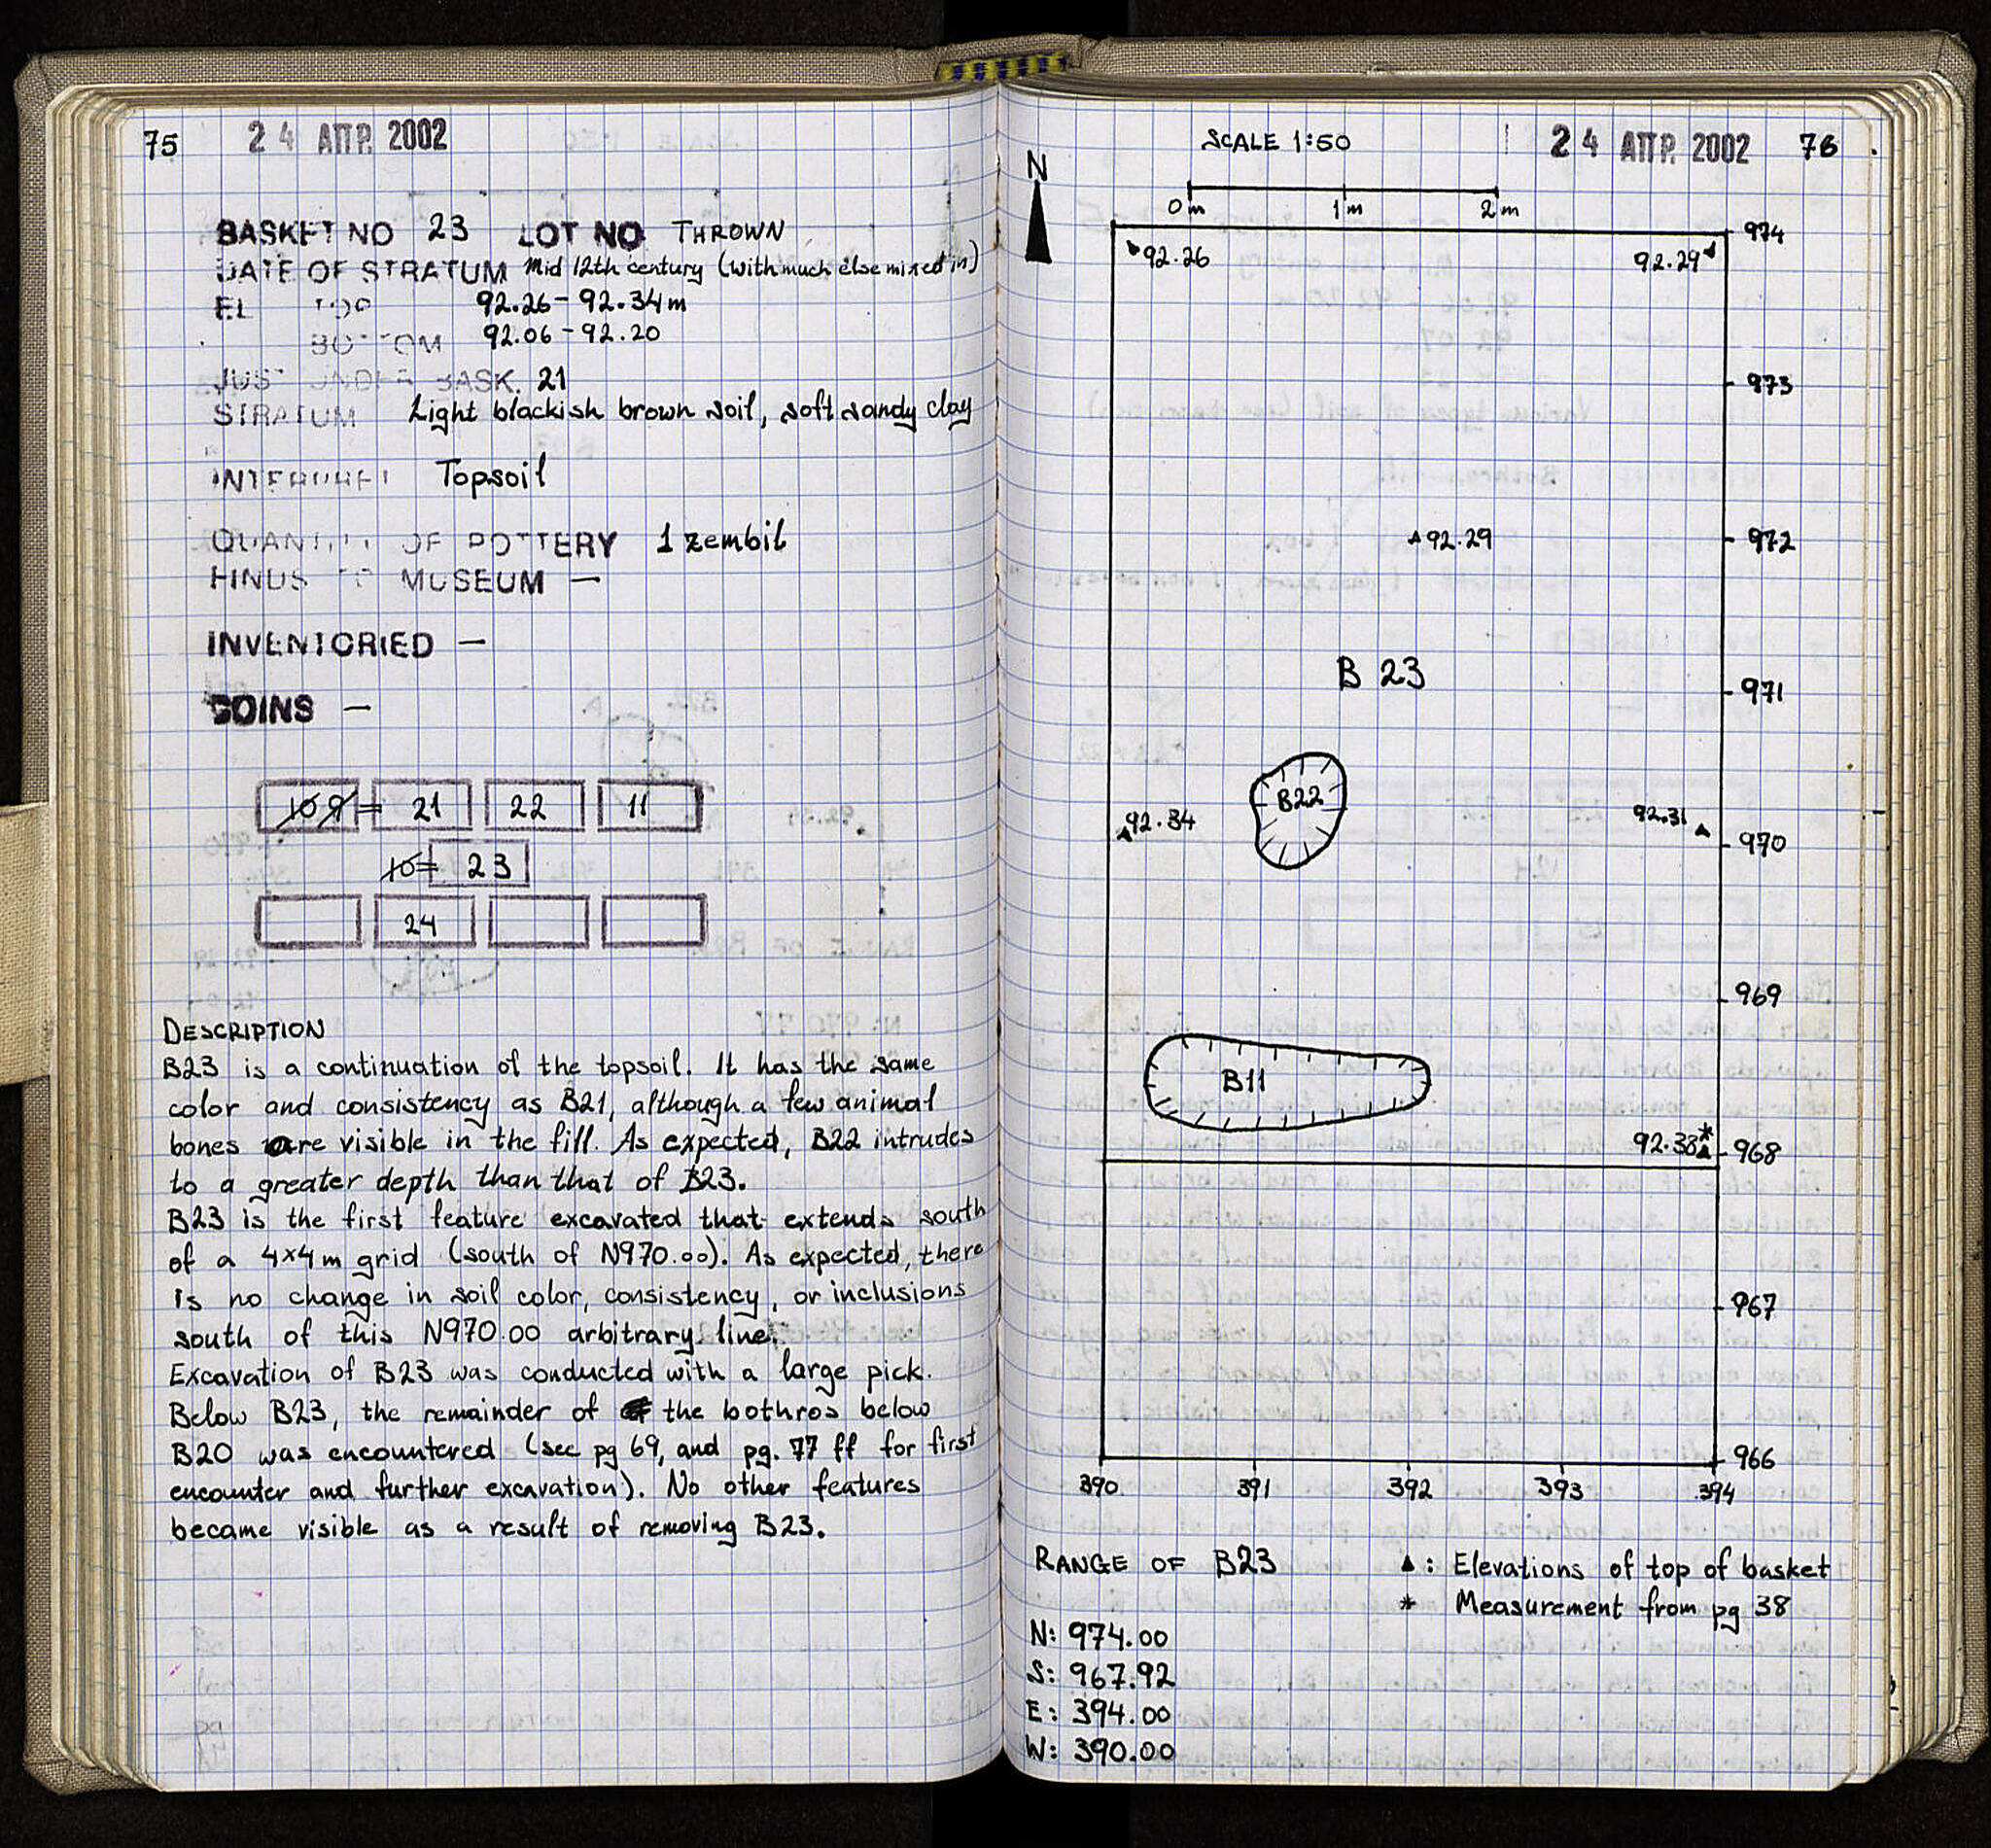 75 24 ΑΠΡ. 2002
BASKET NO 23 LOT NO THROWN
DATE OF STRATUM Mid 12th century (with much else mixed in)
EL TOP 92.26 - 92.34 m
BOTTOM 92.06 - 92.20
JUST UNDER BASK. 21
STRATUM Light blackish brown soil, soft sandy clay
INTERPRET Topsoil
QUANTITY OF POTTERY 1 zembil
FINDS TO MUSEUM —
INVENTORIED —
COINS —
109 = 21 22 11
10 = 23
24
DESCRIPTION
B23 is a continuation of the topsoil. It has the same
color and consistency as B21, although a few animal
bones are visible in the fill. As expected, B22 intrudes
to a greater depth than that of B23.
B23 is the first feature excavated that extends south
of a 4x4m grid (south of N970.00). As expected, there
is no change in soil color, consistency, or inclusions
south of this N970.00 arbitrary line.
Excavation of B23 was conducted with a large pick.
Below B23, the remainder of the bothros below
B20 was encountered (see pg 69, and pg. 77 ff for first
encounter and further excavation). No other features
became visible as a result of removing B23.
SCALE 1:50 24 ΑΠΡ. 2002 76
N
0m 1m 2m
974
92.26 92.29
973
92.29 972
B 23
971
B22
92.34 92.31
970
969
B11
92.38* 968
967
966
390 391 392 393 394
RANGE OF B23 ▲: Elevations of top of basket
* Measurement from pg 38
N: 974.00
S: 967.92
E: 394.00
W: 390.00